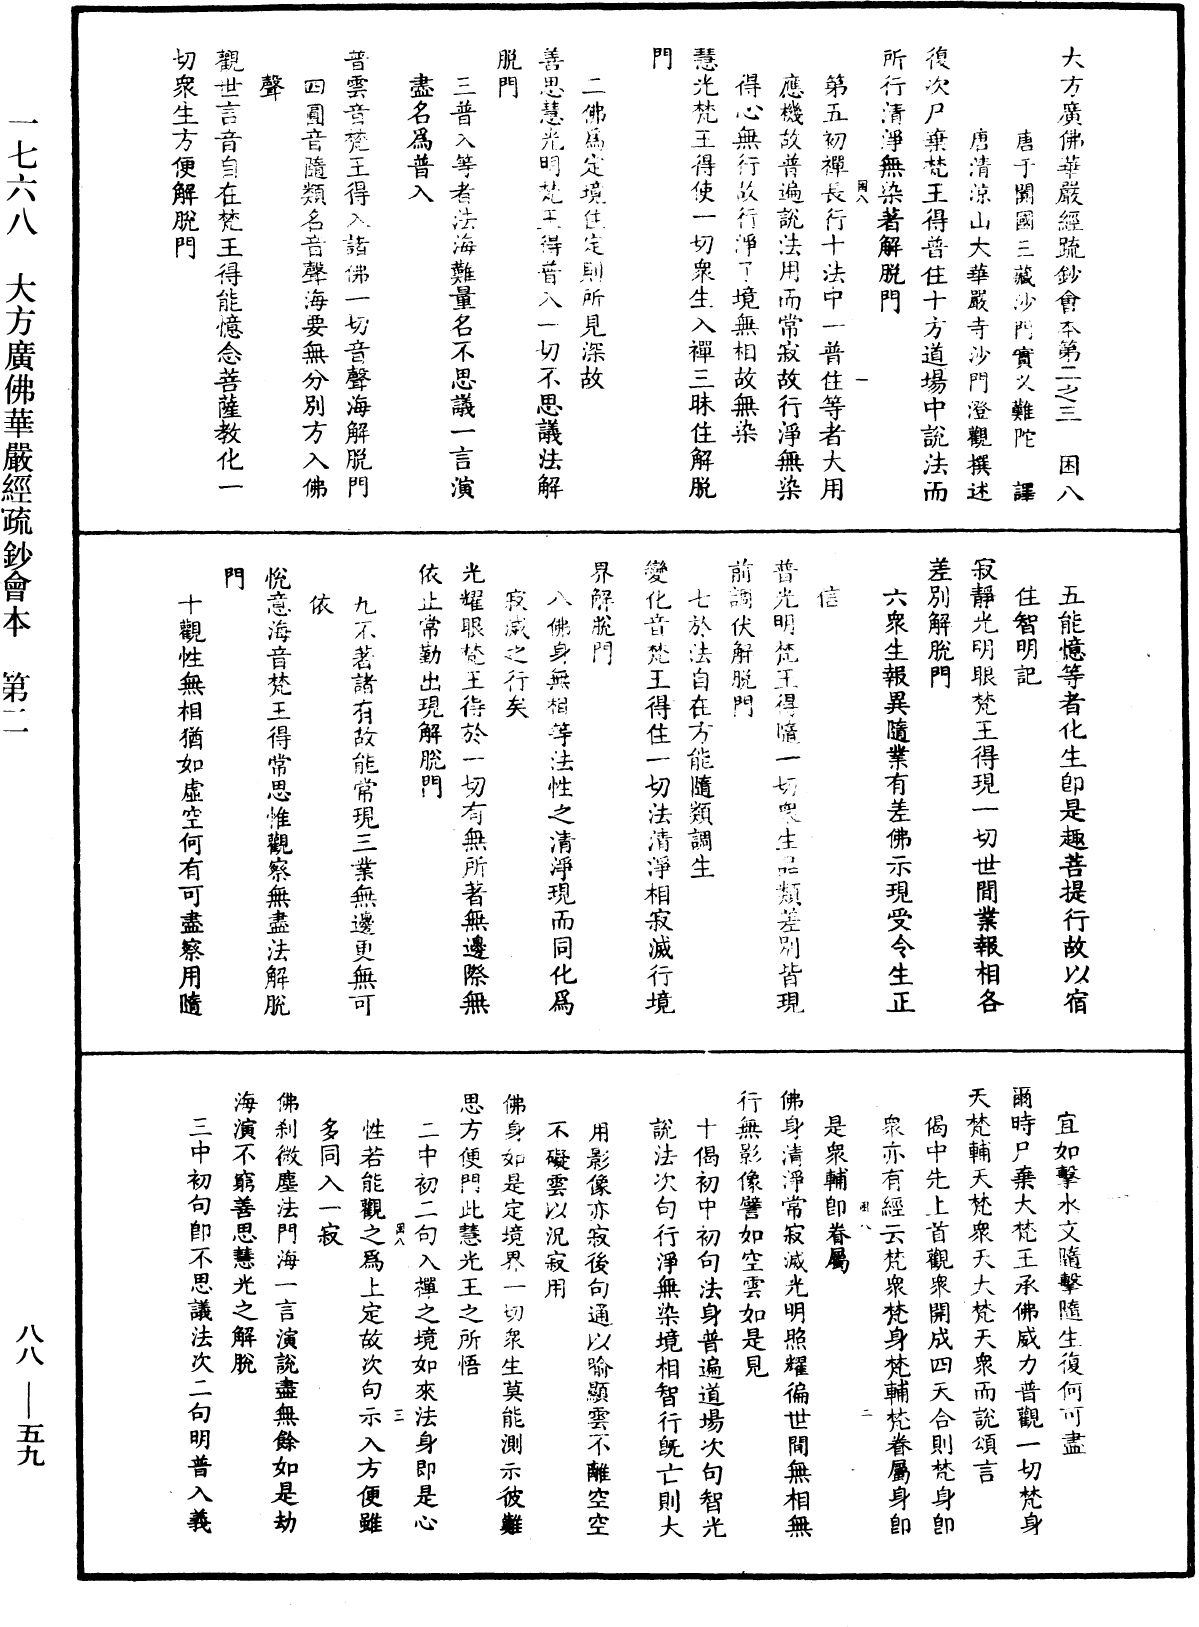 大方廣佛華嚴經疏鈔會本第二之三　困八
唐于闐國三藏沙門實叉難陀　譯
唐清涼山大華嚴寺沙門澄觀撰述
復次尸棄梵王得普住十方道場中說法而
所行清淨無染著解脫門
第五初禪長行十法中一普住等者大用
應機故普遍說法用而常寂故行淨無染
得心無行故行淨了境無相故無染
慧光梵王得使一切衆生入禪三昧住解脫
門
二佛爲定境住定則所見深故
善思慧光明梵王得普入一切不思議法解
脫門
三普入等者法海難量名不思議一言演
盡名爲普入
普雲音梵王得入諸佛一切音聲海解脫門
四圓音隨類名音聲海要無分別方入佛
聲
觀世言音自在梵王得能憶念菩薩教化一
切衆生方便解脫門
五能憶等者化生卽是趣菩提行故以宿
住智明記
寂靜光明眼梵王得現一切世間業報相各
差別解脫門
六衆生報異隨業有差佛示現受令生正
信
普光明梵王得隨一切衆生品類差別皆現
前調伏解脫門
七於法自在方能隨類調生
變化音梵王得住一切法清淨相寂滅行境
界解脫門
八佛身無相等法性之清淨現而同化爲
寂滅之行矣
光耀眼梵王得於一切有無所著無邊際無
依止常勤出現解脫門
九不著諸有故能常現三業無邊更無可
依
悅意海音梵王得常思惟觀察無盡法解脫
門
十觀性無相猶如虛空何有可盡察用隨
宜如擊水文隨擊隨生復何可盡
爾時尸棄大梵王承佛威力普觀一切梵身
天梵輔天梵衆天大梵天衆而說頌言
偈中先上首觀衆開成四天合則梵身卽
衆亦有經云梵衆梵身梵輔梵眷屬身卽
是衆輔卽眷屬
佛身清淨常寂滅光明照耀徧世間無相無
行無影像譬如空雲如是見
十偈初中初句法身普遍道場次句智光
說法次句行淨無染境相智行旣亡則大
用影像亦寂後句通以喻顯雲不離空空
不礙雲以況寂用
佛身如是定境界一切衆生莫能測示彼難
思方便門此慧光王之所悟
二中初二句入禪之境如來法身卽是心
性若能觀之爲上定故次句示入方便雖
多同入一寂
佛刹微塵法門海一言演說盡無餘如是劫
海演不窮善思慧光之解脫
三中初句卽不思議法次二句明普入義
一七六八　大方廣佛華嚴經疏鈔會本　第二
八八——五九